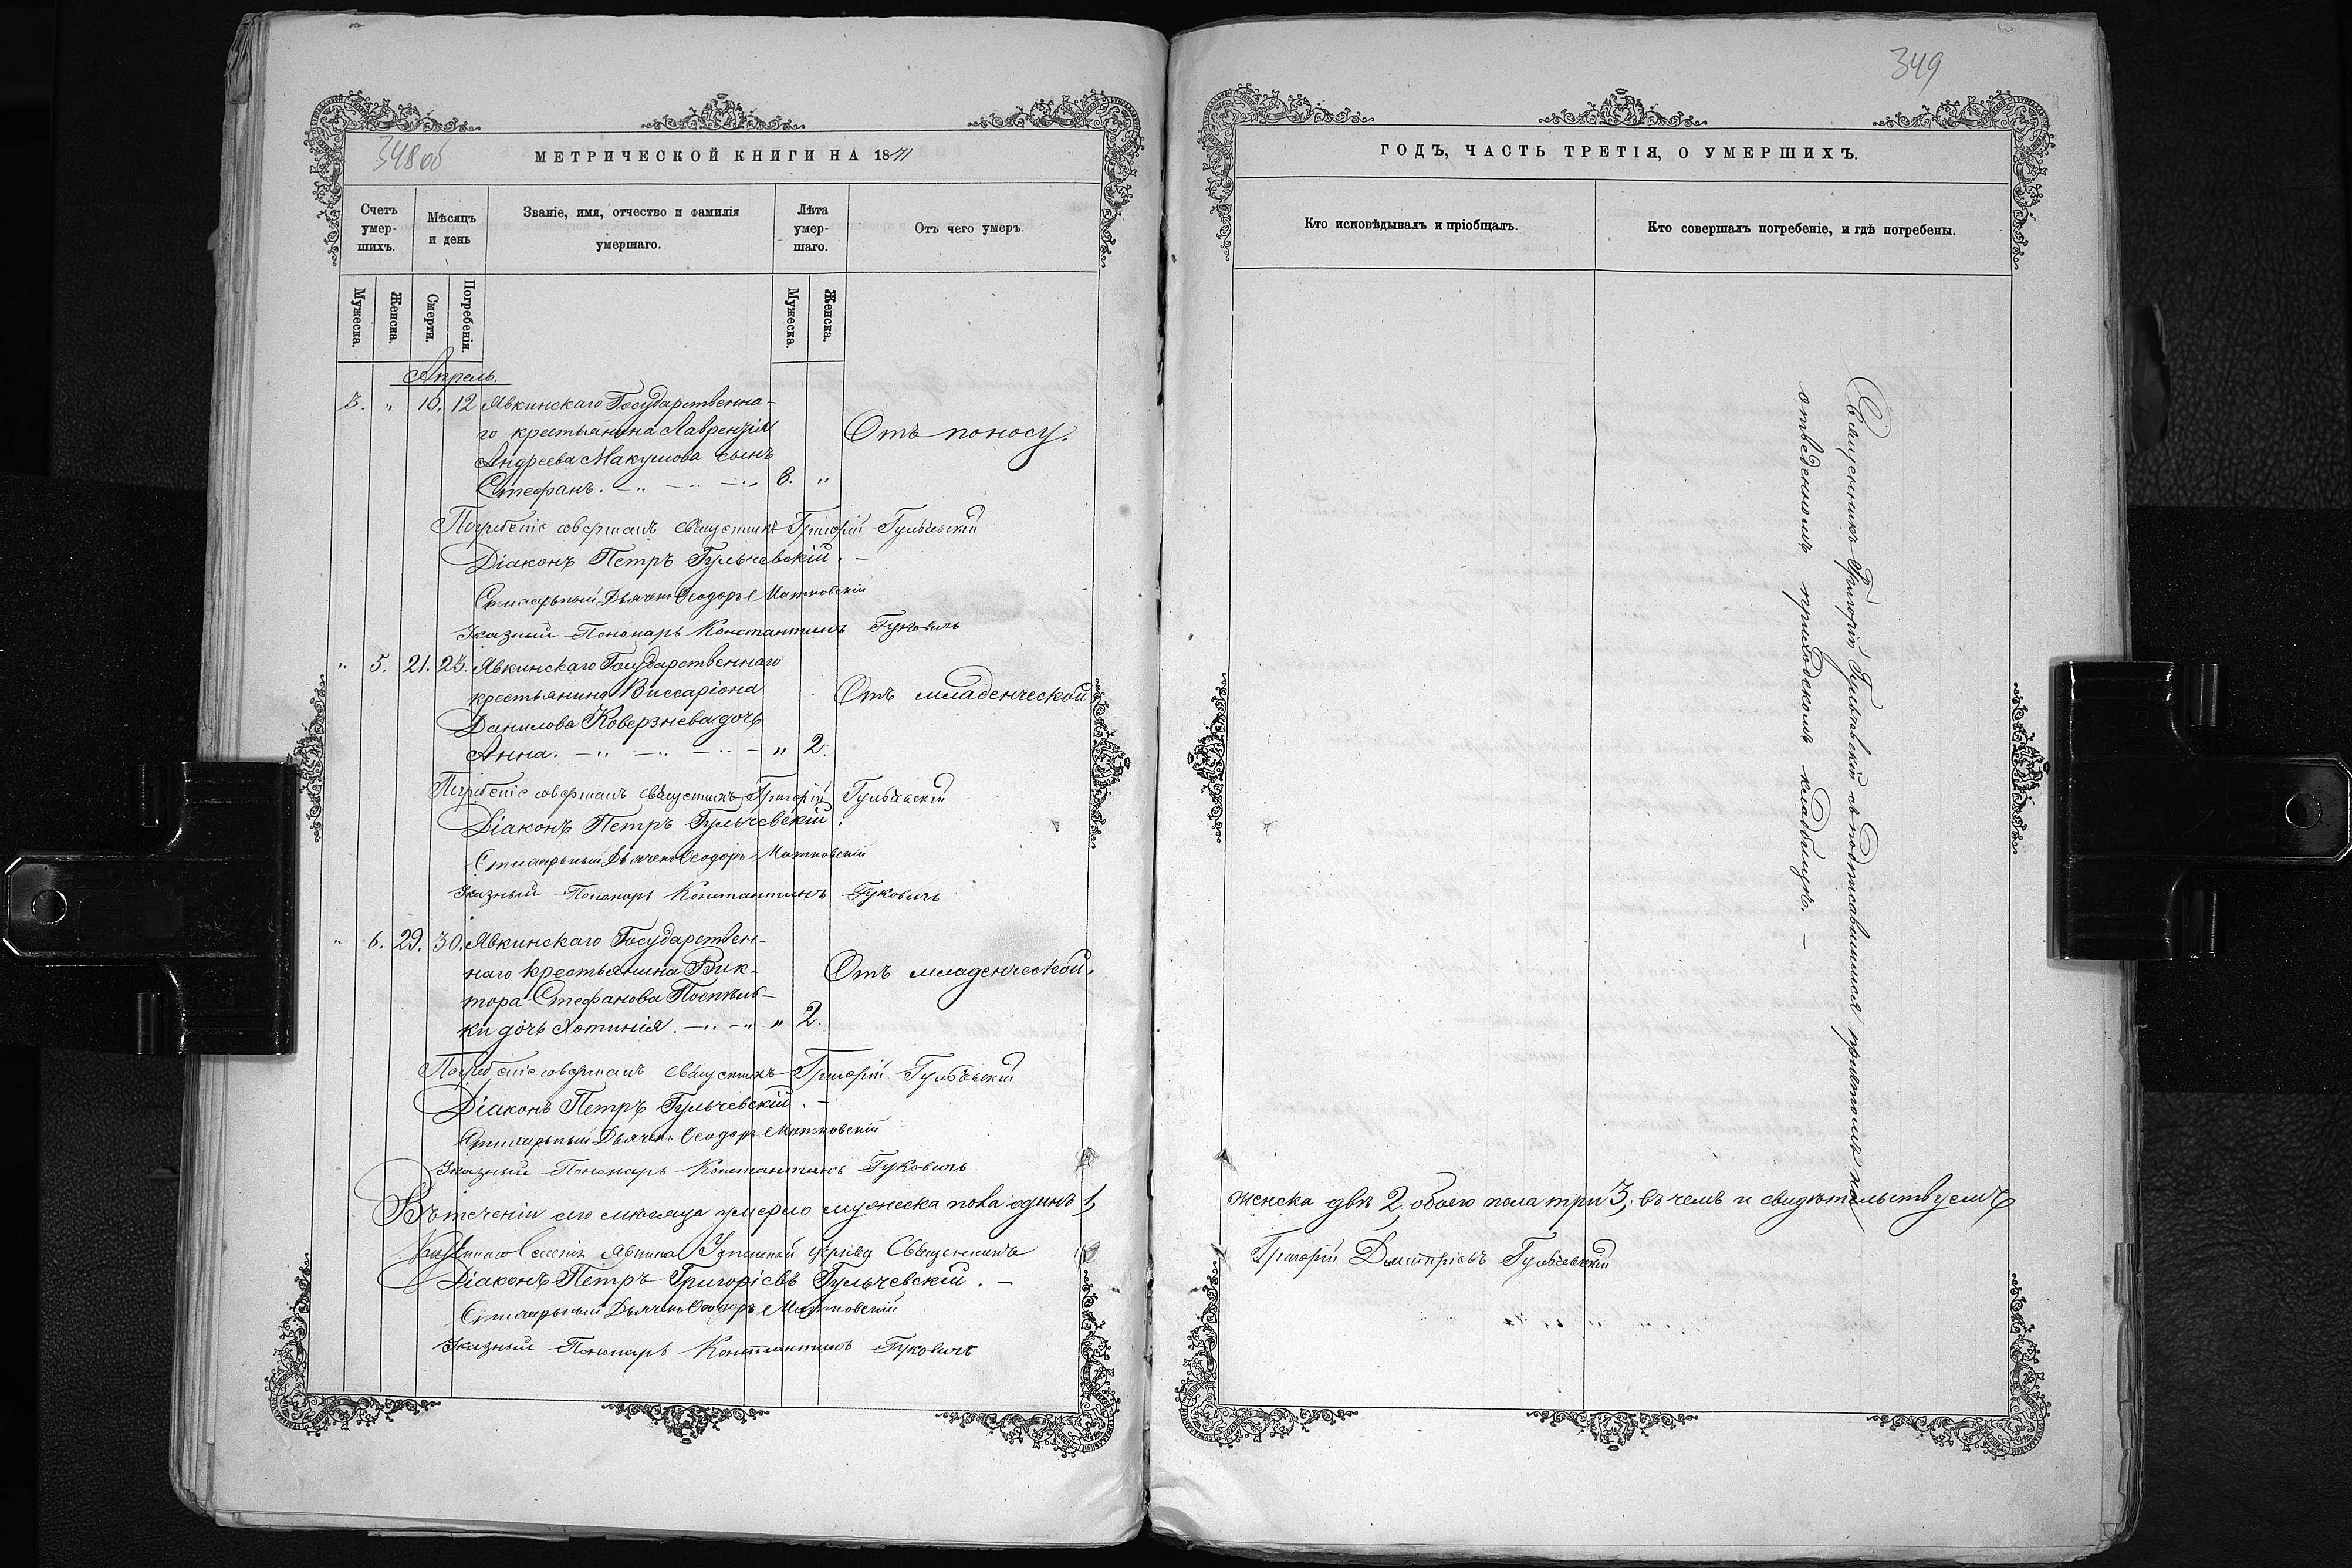 348 об
МЕТРИЧЕСКОЙ КНИГИ НА 1871
Счетъ умер-шихъ.
Мѣсяцъ и день
Званіе, имя, отчество и фамилія умершаго.
Лѣта умер-шаго.
Отъ чего умеръ.
Мужеска.
Женска.
Смерти.
Погребенія.
Мужеска.
Женска.
Апрель.
3. " 10. 12 Явкинскаго Государственна-
го крестьянина Лаврензія
Отъ поносу.
Андреева Макумова сынъ
Стефанъ. 8. "
Погребеніе совершалъ священникъ Григорій Гульчевскій
Діаконъ Петръ Гульчевскій. —
Стихарный Дьячекъ Ѳеодоръ Матковскій
Указный Пономарь Константинъ Гуковичъ
" 5. 21. 23. Явкинскаго Государственнаго
крестьянина Виссаріона
Отъ младенческой
Данилова Коверзнева дочь
Анна. " 2.
Погребеніе совершалъ священникъ Григорій Гульчевскій
Діаконъ Петръ Гульчевскій.
Стихарный Дьячекъ Ѳеодоръ Матковскій
Указный Пономарь Константинъ Гуковичъ
" 6. 29. 30. Явкинскаго Государствен-
наго крестьянина Вик-
Отъ младенческой.
тора Стефанова
ки дочь Хотинія. " 2.
Погребеніе совершалъ священникъ Григорій Гульчевскій
Діаконъ Петръ Гульчевскій. —
Стихарный Дьячекъ Ѳеодоръ Матковскій
Указный Пономарь Константинъ Гуковичъ
Въ теченіи сего мѣсяца умерло мужеска пола одинъ 1,
Явкина церкви Священникъ
Діаконъ Петръ Григоріевъ Гульчевскій. —
Стихарный Дьячекъ Ѳеодоръ Матковскій
Указный Пономарь Константинъ Гуковичъ
349
ГОДЪ, ЧАСТЬ ТРЕТІЯ, О УМЕРШИХЪ.
Кто исповѣдывалъ и пріобщалъ.
Кто совершалъ погребеніе, и гдѣ погребены.
Священникъ Григорій Гульчевскій съ подписавшимися причтомъ на
отведенномъ приходскомъ кладбищѣ. —
женска двѣ 2, обоего пола три 3; въ чемъ и свидѣтельствуемъ
Григорій Дмитріевъ Гульчевскій